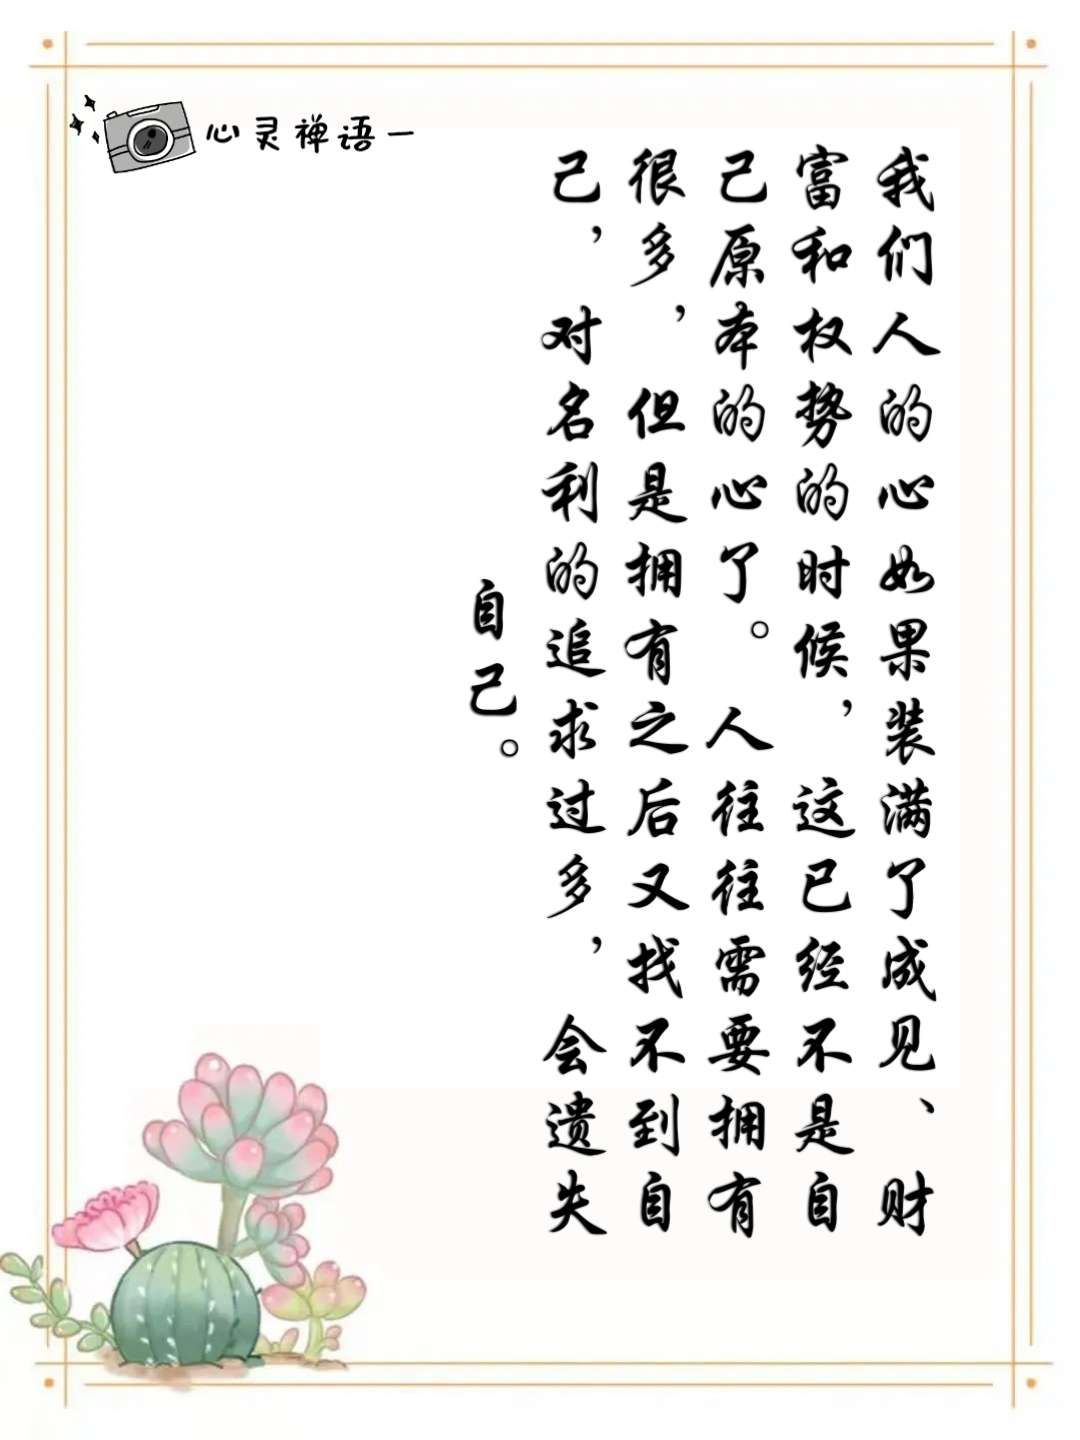 心灵禅语一
我们人的心如果装满了成见、财
富和权势的时候，这已经不是自
己原本的心了。人往往需要拥有
很多，但是拥有之后又找不到自
己，对名利的追求过多，会遗失
自己。